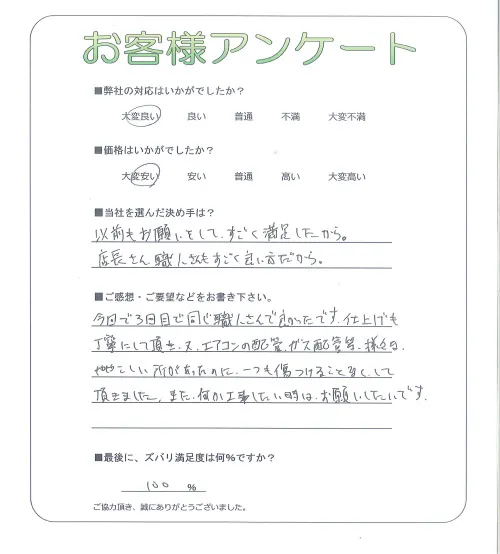 お客様アンケート
■弊社の対応はいかがでしたか？
大変良い 良い 普通 不満 大変不満
■価格はいかがでしたか？
大変安い 安い 普通 高い 大変高い
■当社を選んだ決め手は？
以前もお願いをして、すごく満足したから。
店長さん、職人さんもすごく良い方だから。
■ご感想・ご要望などをお書き下さい。
今回で3回目で同じ職人さんで良かったです。仕上げも
丁寧にして頂き、又、エアコンの配管、ガス配管等、様々な、
ややこしい所があったのに、一つも傷つけることなく、して
頂きました。また、何か工事したい時は、お願いしたいです。
■最後に、ズバリ満足度は何％ですか？
100 ％
ご協力頂き、誠にありがとうございました。